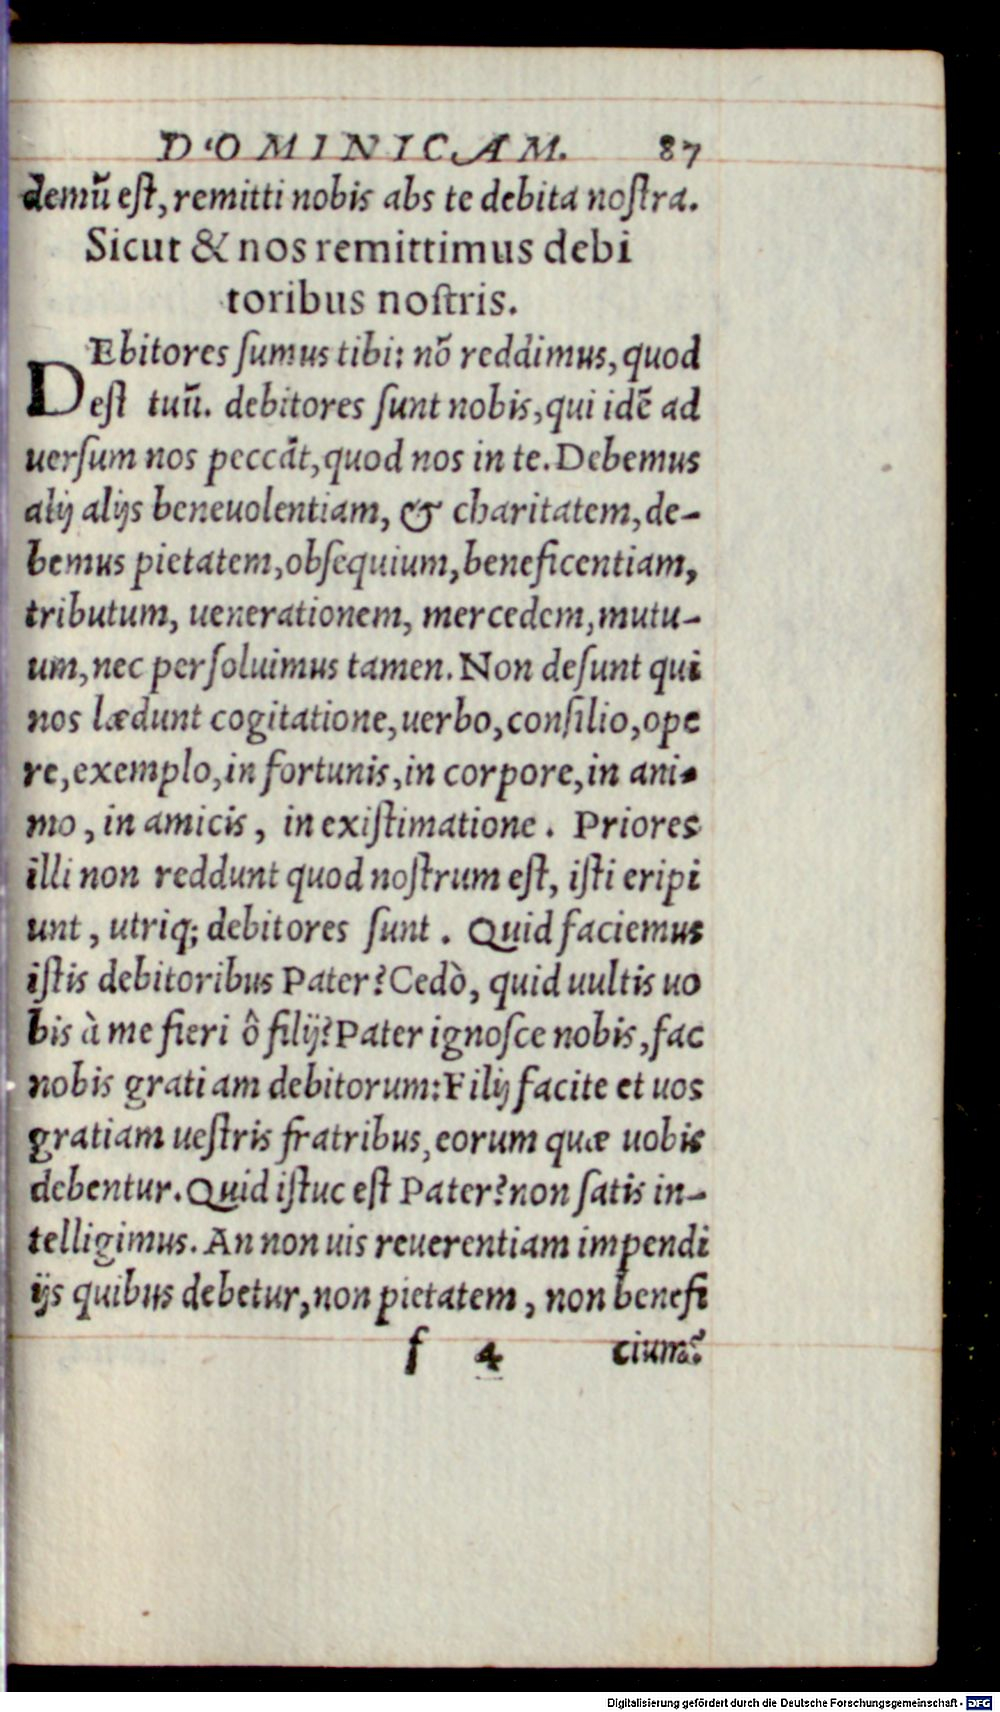 DOMINICAM. 87
demũ eſt, remitti nobis abs te debita noſtra.
Sicut & nos remittimus debi
toribus noſtris.
DEbitores ſumus tibi: nõ reddimus, quod
eſt tuũ. debitores ſunt nobis, qui idẽ ad
uerſum nos peccãt, quod nos in te. Debemus
alij alijs beneuolentiam, & charitatem, de-
bemus pietatem, obſequium, beneficentiam,
tributum, uenerationem, mercedem, mutu-
um, nec perſoluimus tamen. Non deſunt qui
nos lædunt cogitatione, uerbo, conſilio, ope
re, exemplo, in fortunis, in corpore, in ani-
mo, in amicis, in exiſtimatione. Priores
illi non reddunt quod noſtrum eſt, iſti eripi
unt, utriq; debitores ſunt. Quid faciemus
iſtis debitoribus Pater? Cedò, quid uultis uo
bis à me fieri ô filij? Pater ignoſce nobis, fac
nobis gratiam debitorum: Filij facite et uos
gratiam ueſtris fratribus, eorum quæ uobis
debentur. Quid iſtuc eſt Pater? non ſatis in-
telligimus. An non uis reuerentiam impendi
ijs quibus debetur, non pietatem, non benefi
f 4 cium?
Digitalisierung gefördert durch die Deutsche Forschungsgemeinschaft - DFG